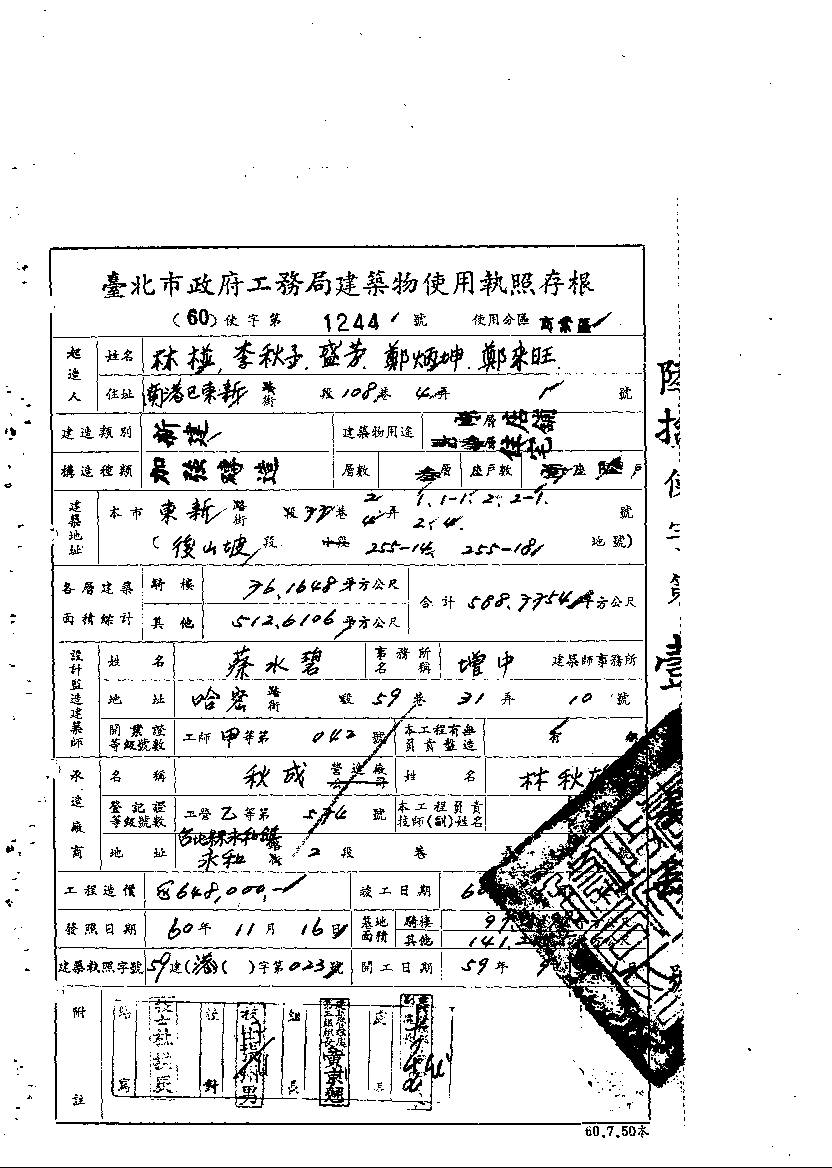 臺北市政府工務局建築物使用執照存根
(60)使字第 1244 號 使用分區 商業區
起造人 姓名 林 李秋子 盛芳 鄭炳坤 鄭來旺
住址 南港區東新路街 段108巷4弄 1 號
建造類別 新建 建築物用途 層店舖 層住宅
構造種類 加強磚造 層數 層 座戶數 座 戶
建築地址 本市 東新路街 段37巷 2 4弄 1.1-1.2.2-1. 2.4. 號
(後山坡段 小段 255-14. 255-181 地號)
各層建築面積總計 騎樓 76.1648平方公尺 合計 588.7754平方公尺
其他 512.6106平方公尺
設計監造建築師 姓名 蔡水碧 事務所名稱 增中 建築師事務所
地址 哈密路街 段59巷31弄 10號
開業證等級號數 工師甲等第 042 號 本工程有無負責監造 有
承造廠商 名稱 秋成營造廠公司 姓名 林秋
登記證等級號數 工營乙等第 574 號 本工程負責技師(副)姓名
地址 台北縣永和鎮永和路街 2段 巷 弄 號
工程造價 648,000.- 竣工日期 6
發照日期 60年11月16日 基地面積 騎樓 97. 平方公尺
其他 141.2 平方公尺
建築執照字號 59建(港)( )字第023號 開工日期 59年9
附註 繕寫 校對 組長 處長
陸拾使字第壹
60.7.50本